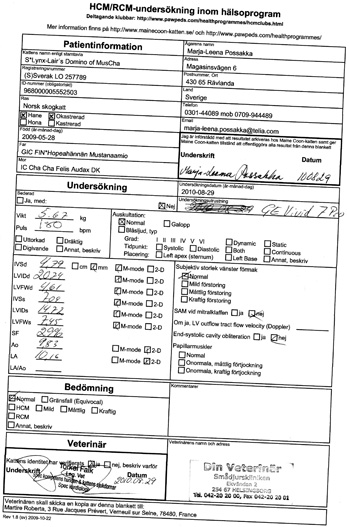 HCM/RCM-undersökning inom hälsoprogram
Deltagande klubbar: http://www.pawpeds.com/healthprogrammes/hcmclubs.html
Mer information finns på http://www.mainecoon-katten.se/ och http://www.pawpeds.com/healthprogrammes/
Patientinformation
Kattens namn enligt stamtavla
S*Lynx-Lair's Domino of MusCha
Registreringsnummer
(S)Sverak LO 257789
ID-nummer (obligatoriskt)
968000005552503
Ras
Norsk skogkatt
Hane Okastrerad
Hona Kastrerad
Född (år-månad-dag)
2009-05-28
Far
GIC FIN*Hopeahännän Mustanaamio
Mor
IC Cha Cha Felis Audax DK
Ägarens namn
Marja-Leena Possakka
Adress
Magasinsvägen 6
Postnummer. Ort
430 65 Rävlanda
Land
Sverige
Telefon
0301-44089 mob 0709-944489
Email
marja-leena.possakka@telia.com
Underskrift Datum
Marja-Leena Possakka 100829
Undersökning
Sederad
Ja, med: Nej
Undersökningsdatum (år-månad-dag)
2010-08-29
Undersökningsutrustning
GE Vivid 7 Pro
Vikt 5.67 kg
Puls 180 bpm
Auskultation:
Normal Galopp
Blåsljud, typ
Uttorkad Dräktig
Digivande Annat, beskriv
Grad: I II III IV V VI
Tidpunkt: Systolic Diastolic
Placering: Left apex (sternum)
Dynamic Static
Both Continuous
Left Base Annat, beskriv
IVSd 4.79 cm mm M-mode 2-D
LVIDd M-mode 2-D
LVFWd 4.61 M-mode 2-D
IVSs 7.09 M-mode 2-D
LVIDs M-mode 2-D
LVFWs 7.45 M-mode 2-D
SF
Ao 9.83 M-mode 2-D
LA M-mode 2-D
LA/Ao
Subjektiv storlek vänster förmak
Normal
Mild förstoring
Måttlig förstoring
Kraftig förstoring
SAM vid mitralklaffen ja nej
Om ja, LV outflow tract flow velocity (Doppler)
End-systolic cavity obliteration ja nej
Papillarmuskler
Normal
Onormala, måttlig förtjockning
Onormala, kraftig förtjockning
Bedömning
Normal Gränsfall (Equivocal)
HCM Mild Måttlig Kraftig
RCM
Annat, beskriv
Kommentarer
Veterinär
Kattens identitet har verifierats ja nej, beskriv varför
Underskrift Datum
Torkel Falk
Leg. Vet
2010.08.29
Veterinärens namn och adress
Din Veterinär
Smådjurskliniken
254 67 HELSINGBORG
Veterinären skall skicka en kopia av denna blankett till:
Martine Roberts, 3 Rue Jacques Prévert, Verneuil sur Seine, 78480, France
Rev 1.8 (sv) 2009-10-22